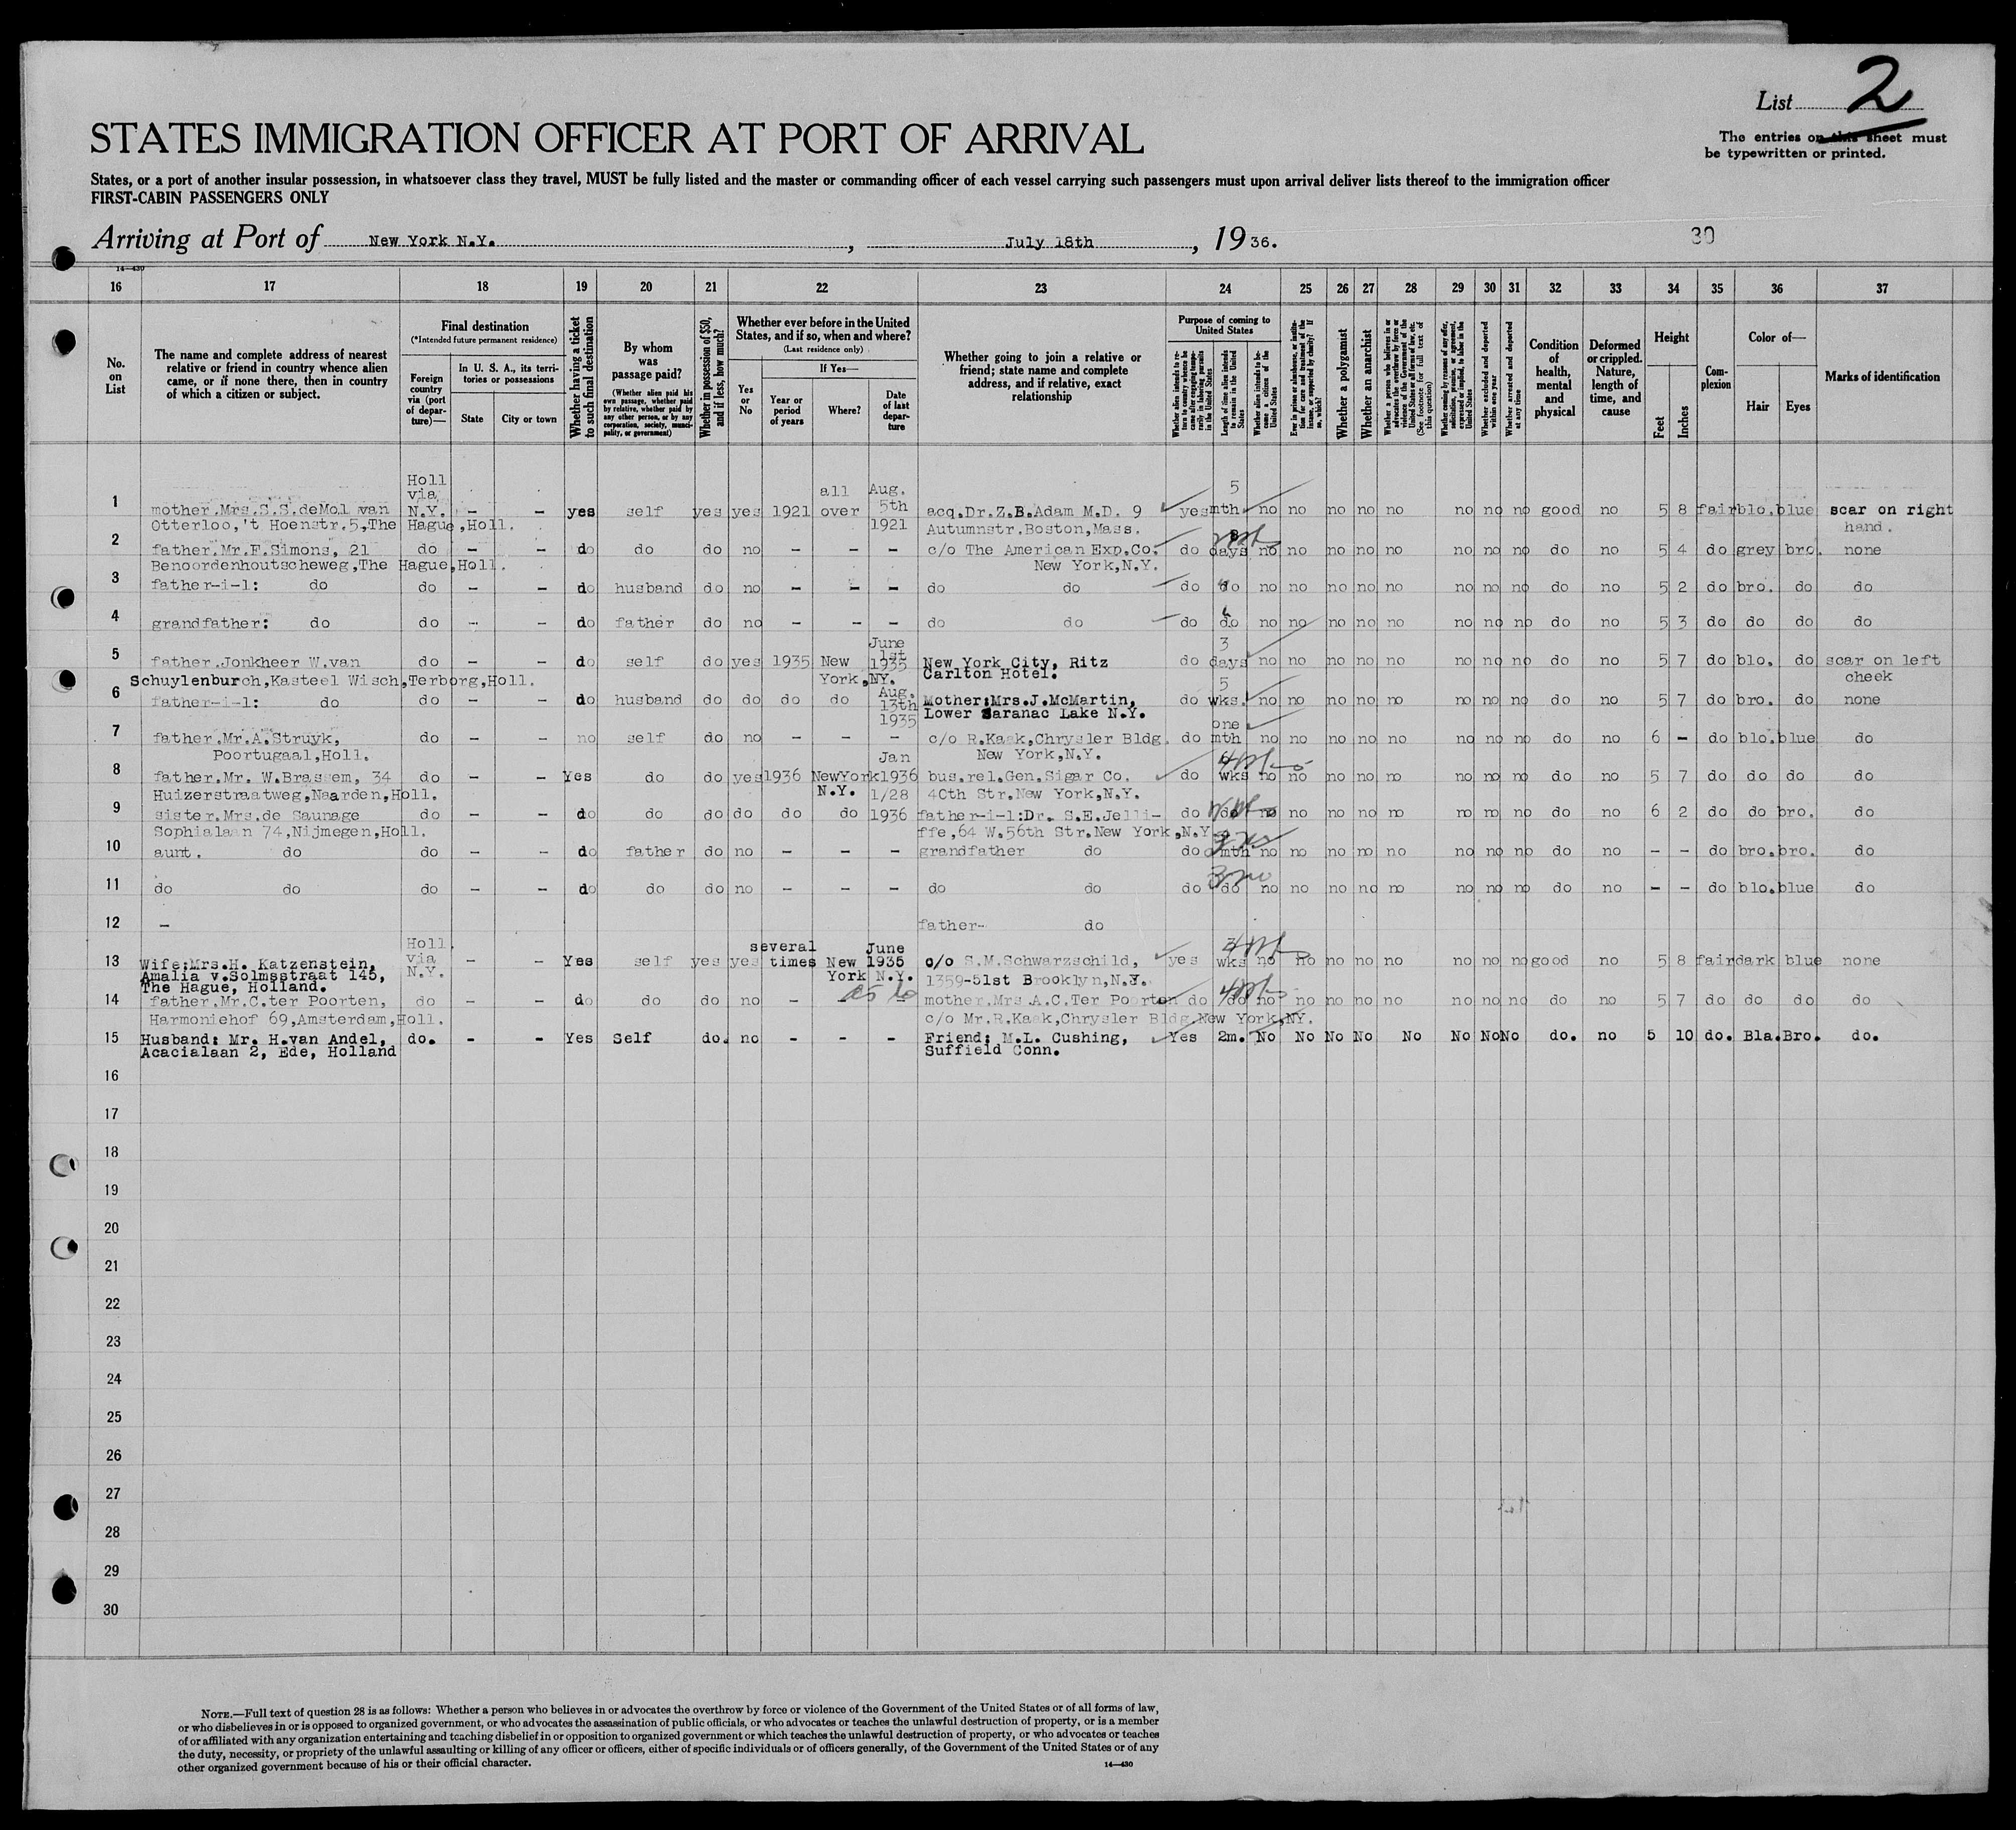 List 2
The entries on this sheet must
be typewritten or printed.
STATES IMMIGRATION OFFICER AT PORT OF ARRIVAL
States, or a port of another insular possession, in whatsoever class they travel, MUST be fully listed and the master or commanding officer of each vessel carrying such passengers must upon arrival deliver lists thereof to the immigration officer
FIRST-CABIN PASSENGERS ONLY
Arriving at Port of New York N.Y. , July 18th , 1936.
30
14—430
16 17 18 19 20 21 22 23 24 25 26 27 28 29 30 31 32 33 34 35 36 37
No. on List
The name and complete address of nearest relative or friend in country whence alien came, or if none there, then in country of which a citizen or subject.
Final destination
(*Intended future permanent residence)
Foreign country via (port of departure)—
In U. S. A., its territories or possessions
State
City or town
Whether having a ticket to such final destination
By whom was passage paid?
(Whether alien paid his own passage, whether paid by relative, whether paid by any other person, or by any corporation, society, municipality, or government)
Whether in possession of $50, and if less, how much?
Whether ever before in the United States, and if so, when and where?
(Last residence only)
Yes or No
If Yes—
Year or period of years
Where?
Date of last departure
Whether going to join a relative or friend; state name and complete address, and if relative, exact relationship
Purpose of coming to United States
Whether alien intends to return to country whence he came after engaging temporarily in laboring pursuits in the United States
Length of time alien intends to remain in the United States
Whether alien intends to become a citizen of the United States
Ever in prison or almshouse, or institution for care and treatment of the insane, or supported by charity? If so, which?
Whether a polygamist
Whether an anarchist
Whether a person who believes in or advocates the overthrow by force or violence of the Government of the United States or all forms of law, etc. (See footnote for full text of this question)
Whether coming by reason of any offer, solicitation, promise, or agreement, expressed or implied, to labor in the United States
Whether excluded and deported within one year
Whether arrested and deported at any time
Condition of health, mental and physical
Deformed or crippled. Nature, length of time, and cause
Height
Feet
Inches
Complexion
Color of—
Hair
Eyes
Marks of identification
Holl via N.Y. all Aug. 5th 1921 5
1 mother.Mrs.S.S.deMol van – – yes self yes yes 1921 over acq.Dr.Z.B.Adam M.D. 9 yes mth. no no no no no no no no good no 5 8 fair blo. blue scar on right
Otterloo,'t Hoenstr.5,The Hague,Holl. Autumnstr.Boston,Mass. hand.
2 father.Mr.F.Simons, 21 do – – do do do no – – – c/o The American Exp.Co. do days no no no no no no no no do no 5 4 do grey bro. none
Benoordenhoutscheweg,The Hague,Holl. New York,N.Y.
3 father-i-l: do do – – do husband do no – – – do do do do no no no no no no no no do no 5 2 do bro. do do
4 grandfather: do do – – do father do no – – – do do do do no no no no no no no no do no 5 3 do do do do
June 1st 3
5 father.Jonkheer W.van do – – do self do yes 1935 New 1935 New York City, Ritz do days no no no no no no no no do no 5 7 do blo. do scar on left
Schuylenburch,Kasteel Wisch,Terborg,Holl. York,NY. Carlton Hotel. cheek
Aug. 5
6 father-i-l: do do – – do husband do do do do 13th Mother:Mrs.J.McMartin, do wks. no no no no no no no no do no 5 7 do bro. do none
1935 Lower Saranac Lake N.Y.
one
7 father.Mr.A.Struyk, do – – no self do no – – – c/o R.Kaak,Chrysler Bldg. do mth no no no no no no no no do no 6 – do blo. blue do
Poortugaal,Holl. Jan New York,N.Y.
8 father.Mr. W.Brassem, 34 do – – Yes do do yes 1936 NewYork 1936 bus.rel.Gen.Sigar Co. do wks no no no no no no no no do no 5 7 do do do do
Huizerstraatweg,Naarden,Holl. N.Y. 1/28 40th Str.New York,N.Y.
9 sister.Mrs.de Saunage do – – do do do do do do 1936 father-i-l:Dr. S.E.Jelli- do do no no no no no no no no do no 6 2 do do bro. do
Sophialaan 74,Nijmegen,Holl. ffe,64 W.56th Str.New York,N.Y.
10 aunt. do do – – do father do no – – – grandfather do do mth no no no no no no no no do no – – do bro. bro. do
3 mo
11 do do do – – do do do no – – – do do do do no no no no no no no no do no – – do blo. blue do
12 – father- do
Holl. via N.Y. several June
13 Wife:Mrs.H. Katzenstein, – – Yes self yes yes times New 1935 c/o S.M.Schwarzschild, yes wks no no no no no no no no good no 5 8 fair dark blue none
Amalia v.Solmsstraat 145, York N.Y. 1359-51st Brooklyn,N.Y.
The Hague, Holland.
14 father.Mr.C.ter Poorten, do – – do do do no – – – mother.Mrs.A.C.Ter Poorten do do no no no no no no no no do no 5 7 do do do do
Harmoniehof 69,Amsterdam,Holl. c/o Mr.R.Kaak,Chrysler Bldg.New York,NY.
15 Husband: Mr. H.van Andel, do. - - Yes Self do. no - - - Friend: M.L. Cushing, Yes 2m. No No No No No No No No do. no 5 10 do. Bla. Bro. do.
Acacialaan 2, Ede, Holland Suffield Conn.
16
17
18
19
20
21
22
23
24
25
26
27
28
29
30
NOTE.—Full text of question 28 is as follows: Whether a person who believes in or advocates the overthrow by force or violence of the Government of the United States or of all forms of law,
or who disbelieves in or is opposed to organized government, or who advocates the assassination of public officials, or who advocates or teaches the unlawful destruction of property, or is a member
of or affiliated with any organization entertaining and teaching disbelief in or opposition to organized government or which teaches the unlawful destruction of property, or who advocates or teaches
the duty, necessity, or propriety of the unlawful assaulting or killing of any officer or officers, either of specific individuals or of officers generally, of the Government of the United States or of any
other organized government because of his or their official character.
14—430